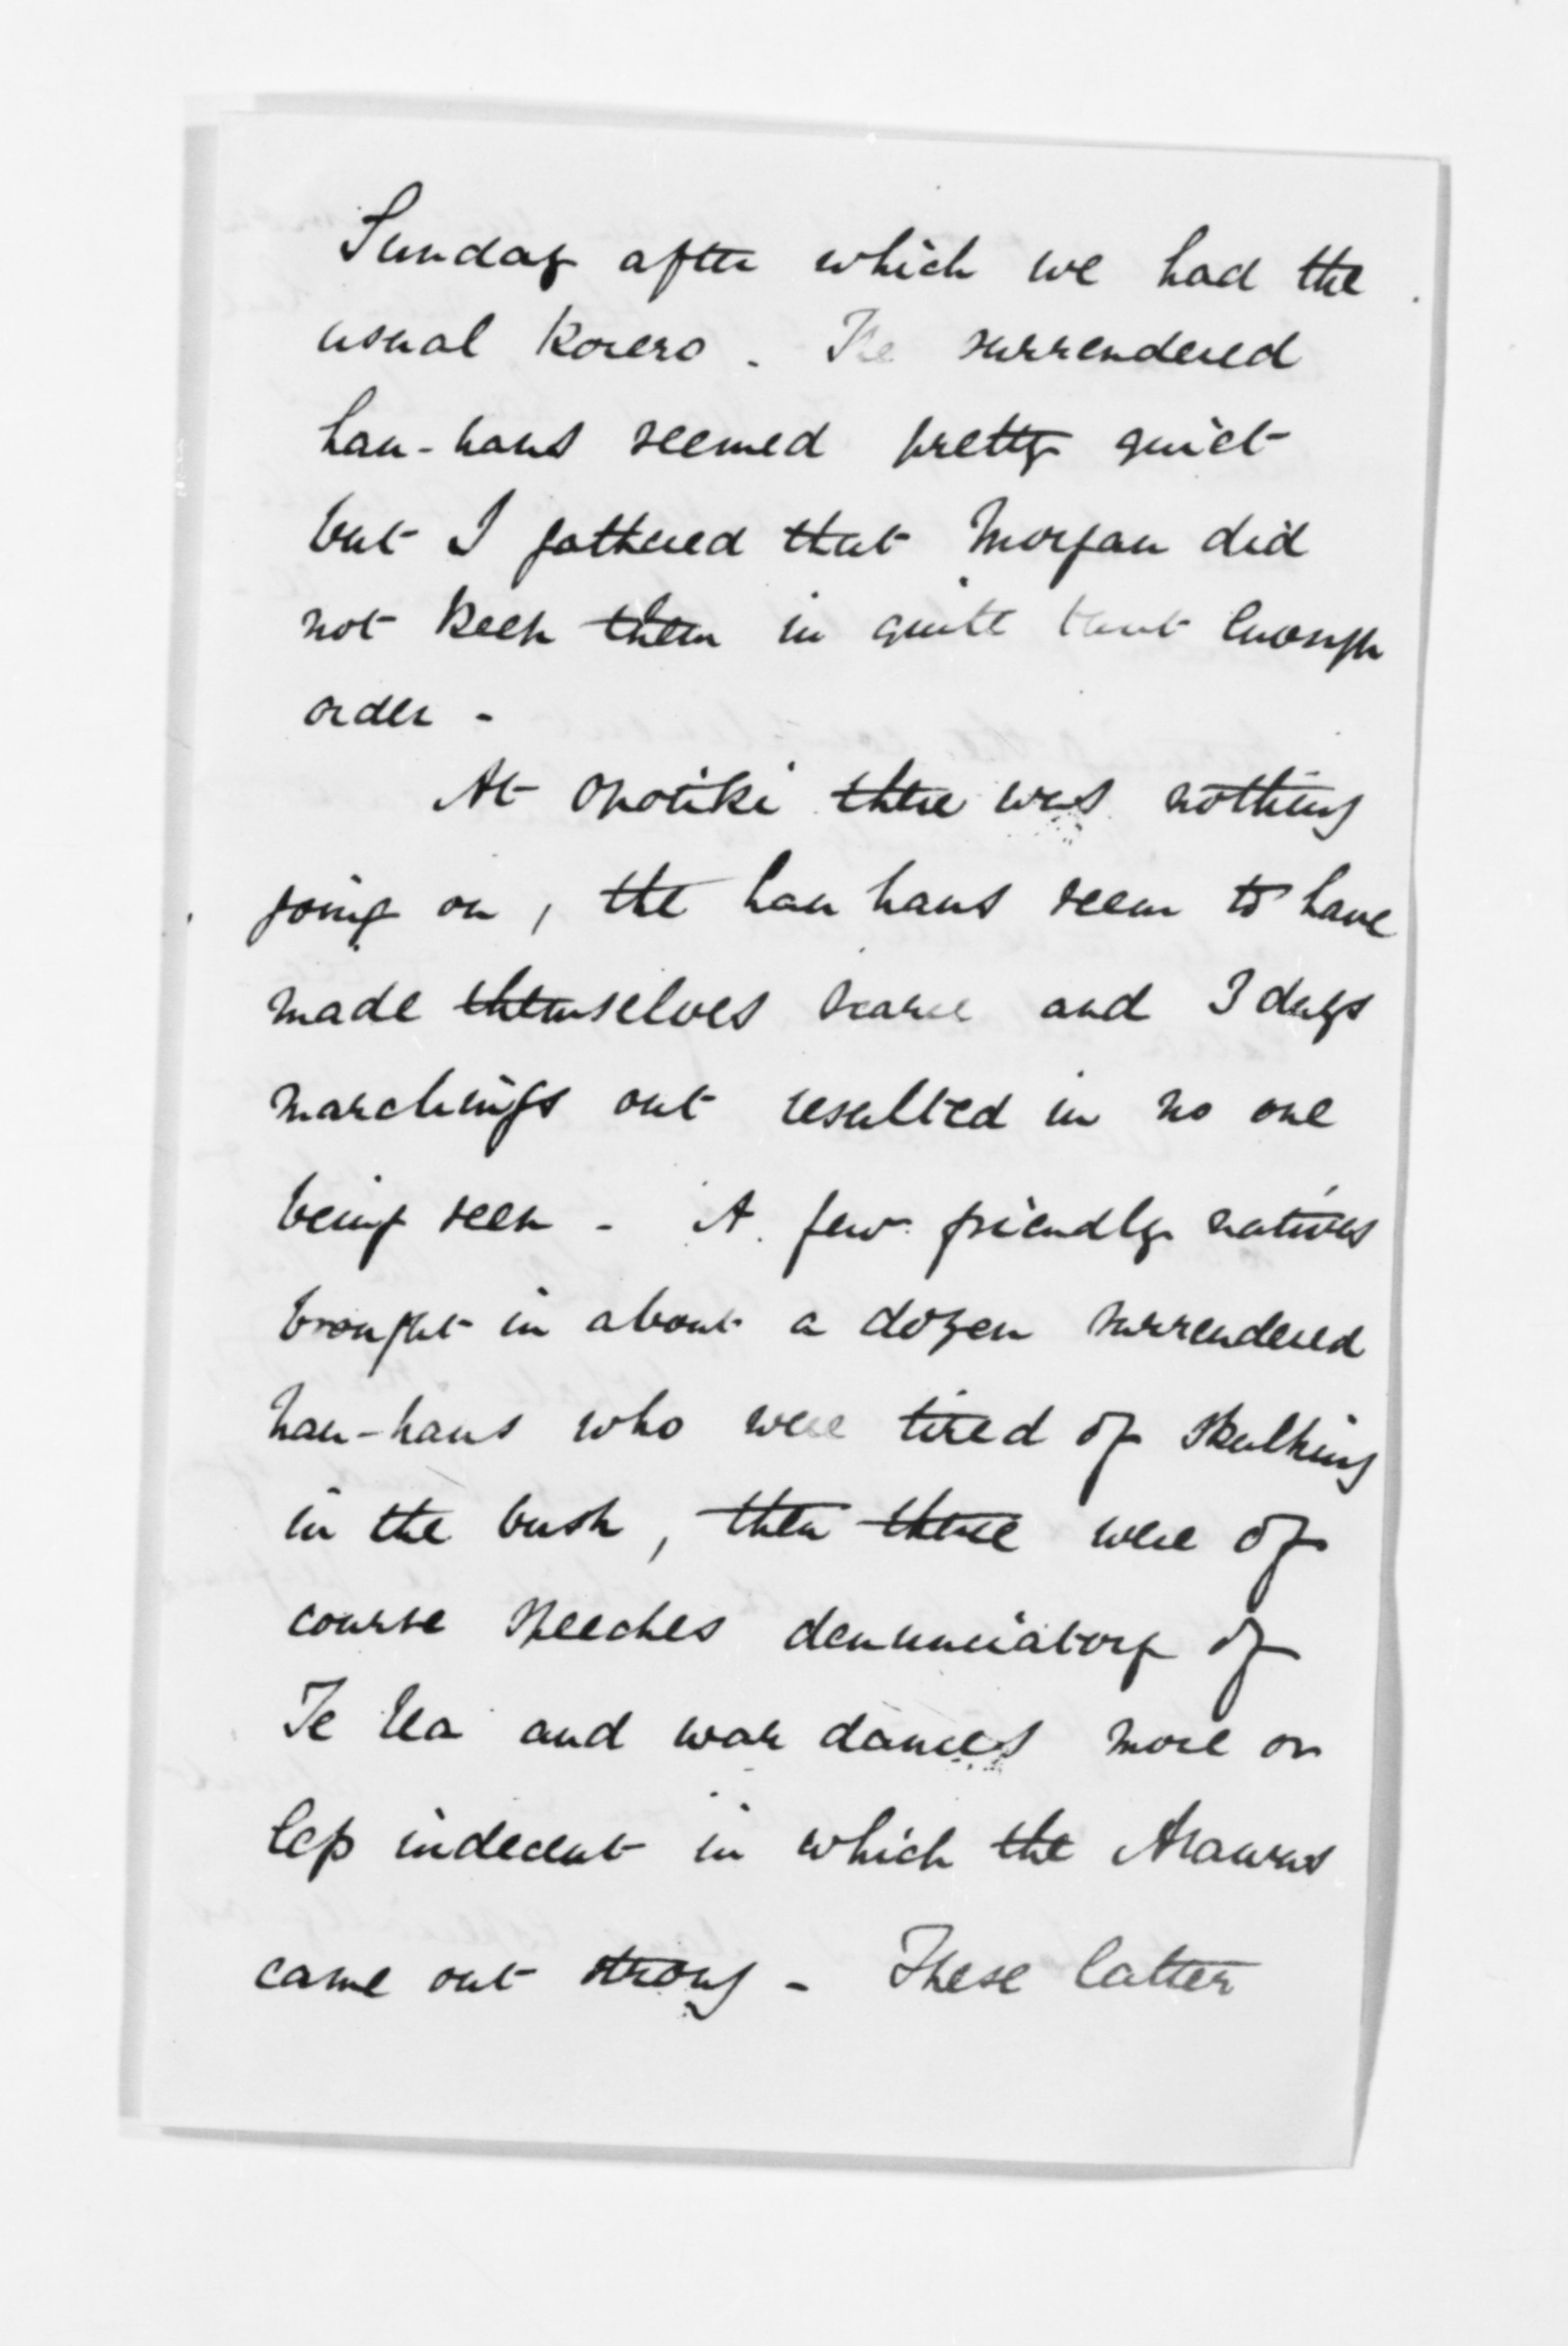 Sunday after which we had the
usual Korero . The surrendered
hau-haus seemed pretty quiet
but I gathered that Morgan did
not keep them in quite taut enough
order -
At Opotiki there was nothing
going on , the hau haus seem to have
made themselves scarce and 3 days
marchings out resulted in no one
being seen - A few friendly natives
brought in about a dozen surrendered
hau-haus who were tired of skulking
in the bush , then there were of
course speeches denunciatory of
Te Ua and war dances more or
less indecent in which the Arawas
came out strong - These latter